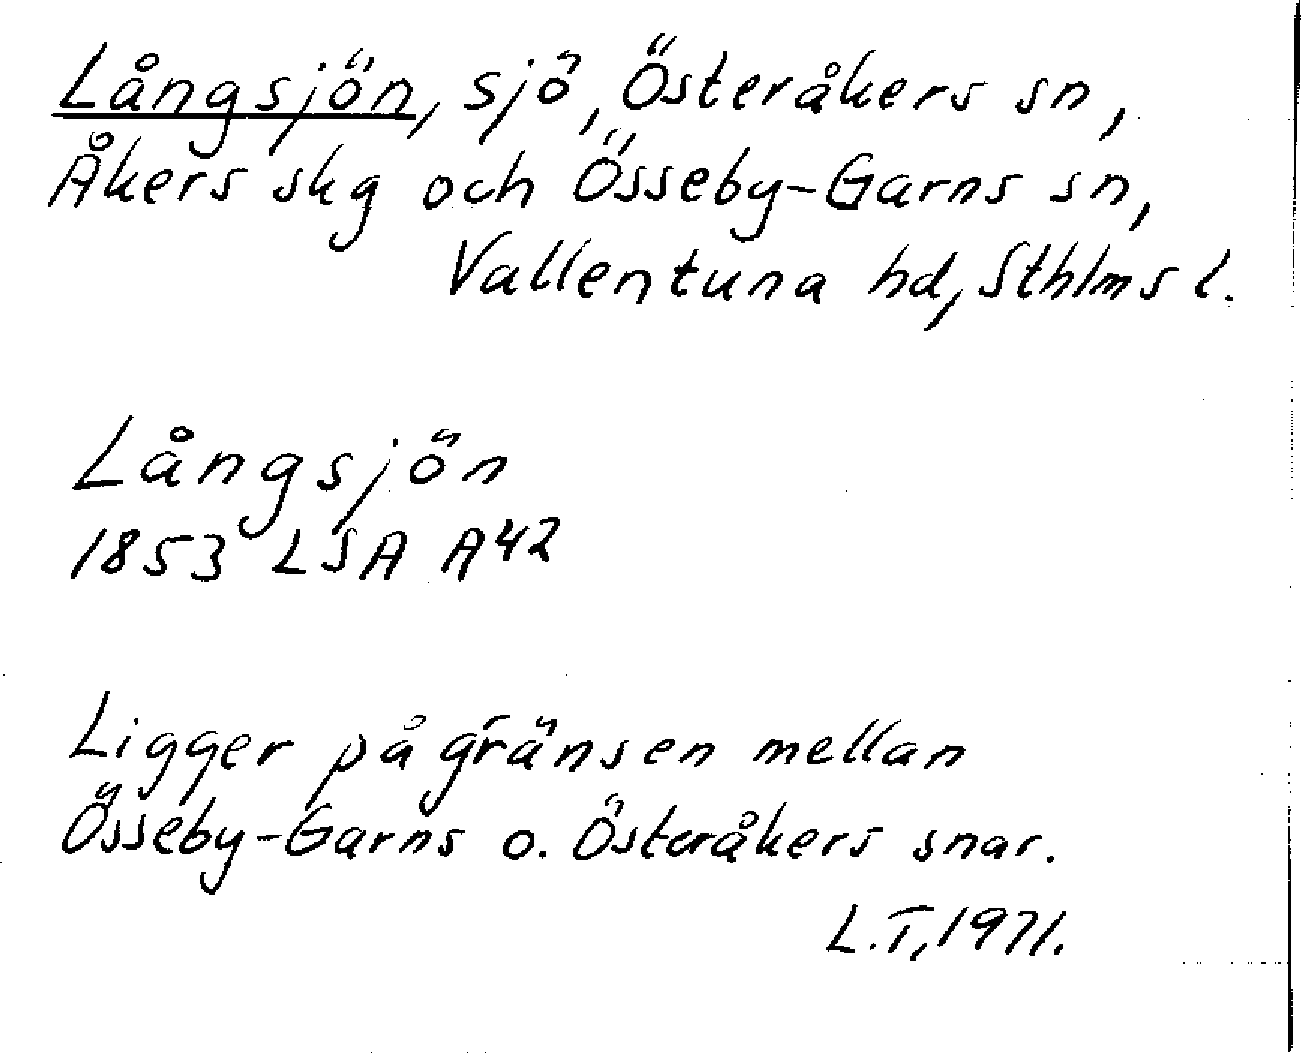 Långsjön, sjö, Österåkers sn,
Åkers skg och Össeby-Garns sn,
Vallentuna hd, Sthlms l.
Långsjön
1853 LSA A42
Ligger på gränsen mellan
Össeby-Garns o. Österåkers snar.
L.T, 1971.